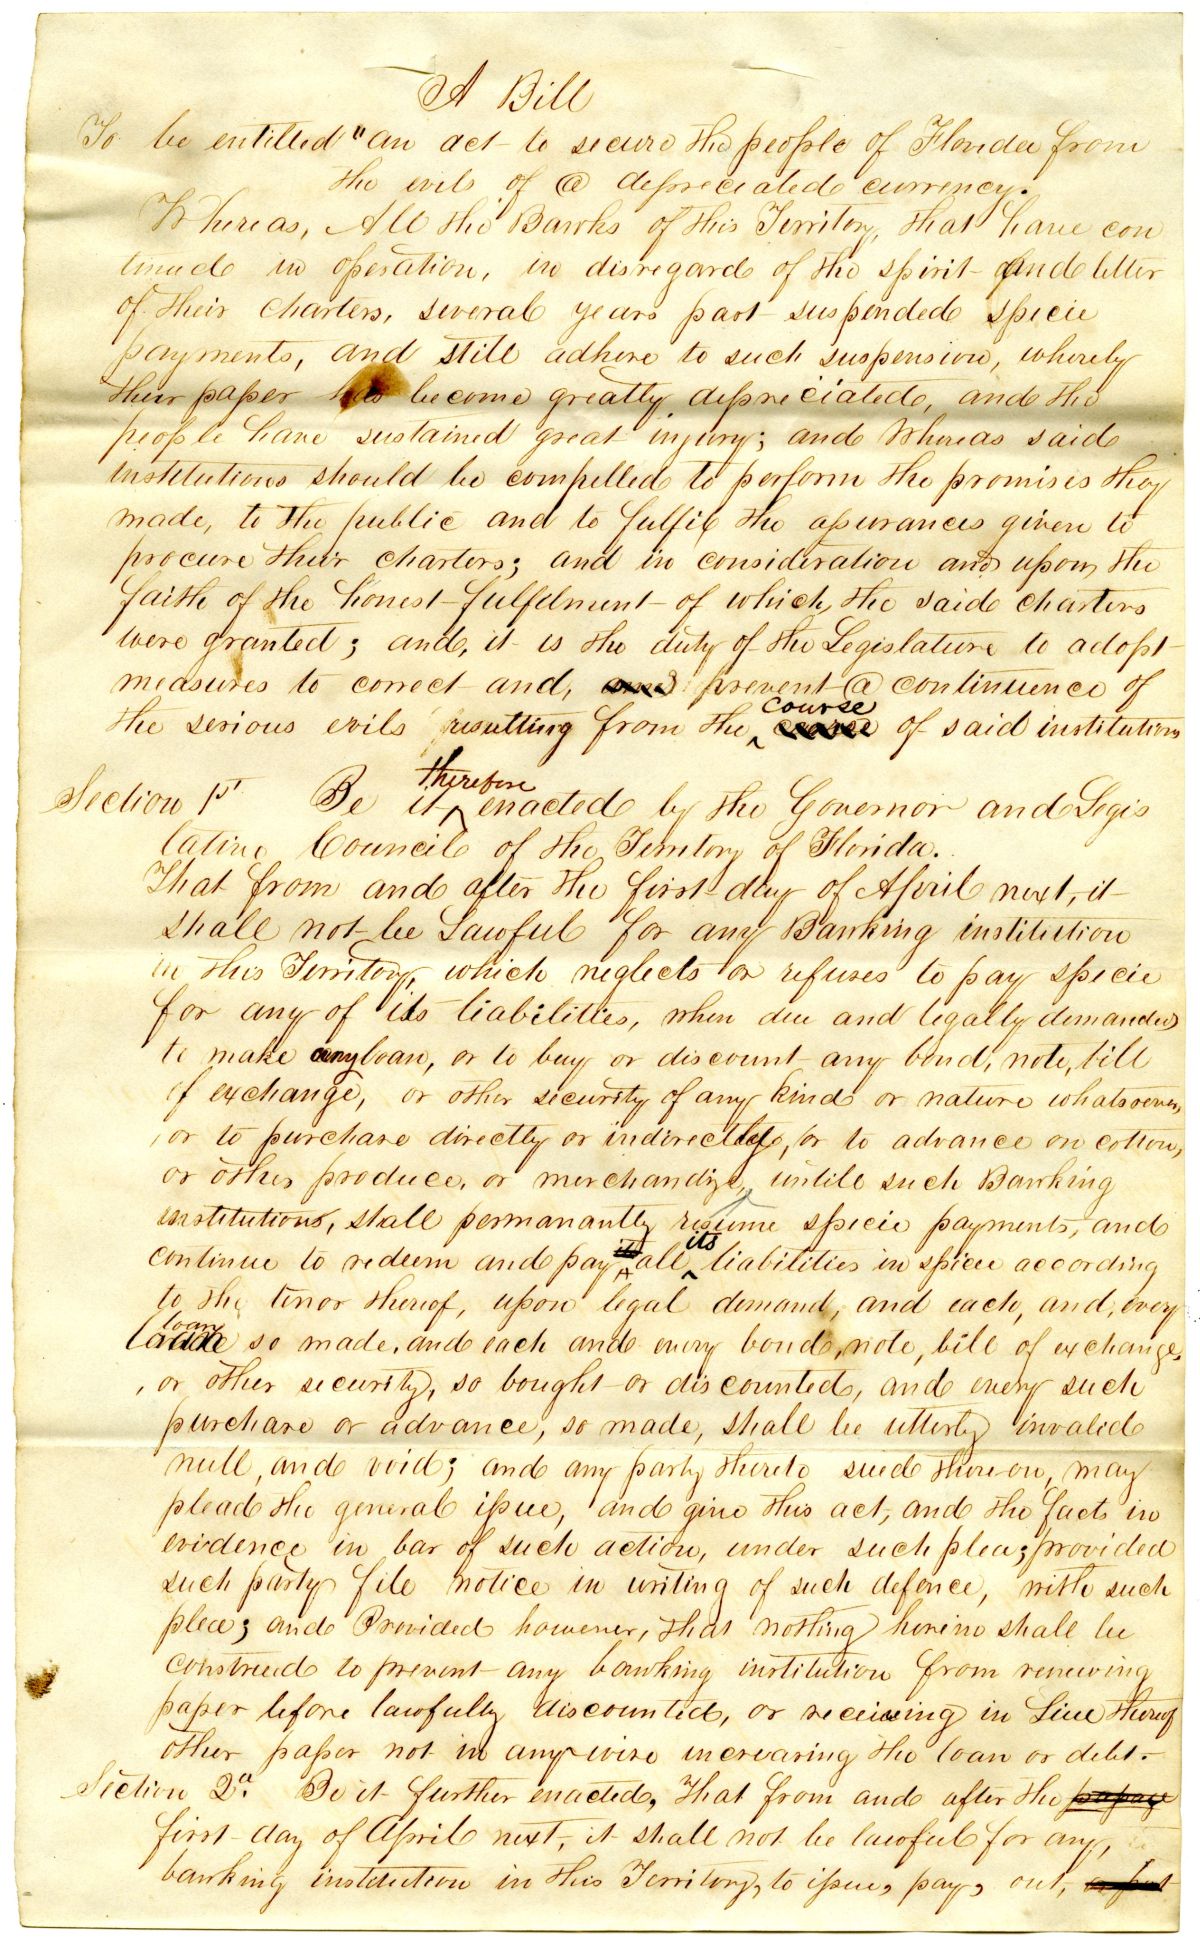 A Bill
To be entitled "an act to secure the people of Florida from
the evils of a depreciated currency.
Whereas, All the Banks of this Territory, that have con
tinued in operation, in disregard of the spirit and letter
of their charters, several years past suspended specie
payments, and still adhere to such suspension, whereby
their paper has become greatly depreciated, and the
people have sustained great injury; and Whereas said
institutions should be compelled to perform the promises they
made, to the public and to fulfil the assurances given to
procure their charters; and in consideration and upon the
faith of the honest fulfilment of which, the said charters
were granted; and, it is the duty of the Legislature to adopt
measures to correct and, and prevent a continuence of
the serious evils resulting from the course of said institutions
Section 1st Be it therefore enacted by the Governor and Legis
lative Council of the Territory of Florida.
That from and after the first day of April next, it
shall not be Lawful for any Banking institution
in this Territory, which neglects or refuses to pay specie
for any of its liabilities, when due and legally demanded
to make any loan, or to buy or discount any bond, note, bill
of exchange, or other security of any kind or nature whatsoever,
, or to purchase directly or indirectly, or to advance on cotton,
or other produce, or merchandize, untill such Banking
institutions, shall permanantly resume specie payments, and
continue to redeem and pay all its liabilities in specie according
to the tenor thereof, upon legal demand, and each, and, every
loan so made, and each and every bond, note, bill of exchange,
, or other security, so bought or discounted, and every such
purchase or advance, so made, shall be utterly invalid
null, and void; and any party thereto sued thereon, may
plead the general issue, and give this act, and the facts in
evidence in bar of such action, under such plea; provided
such party file notice in writing of such defence, with such
plea; and Provided however, that nothing herein shall be
construed to prevent any banking institution from renewing
paper before lawfully discounted, or receiving in Lieu thereof
other paper not in any wise increasing the loan or debt.
Section 2d. Be it further enacted, That from and after the
first day of April next, it shall not be lawful for any,
banking institution in this Territory, to issue, pay, out, or put